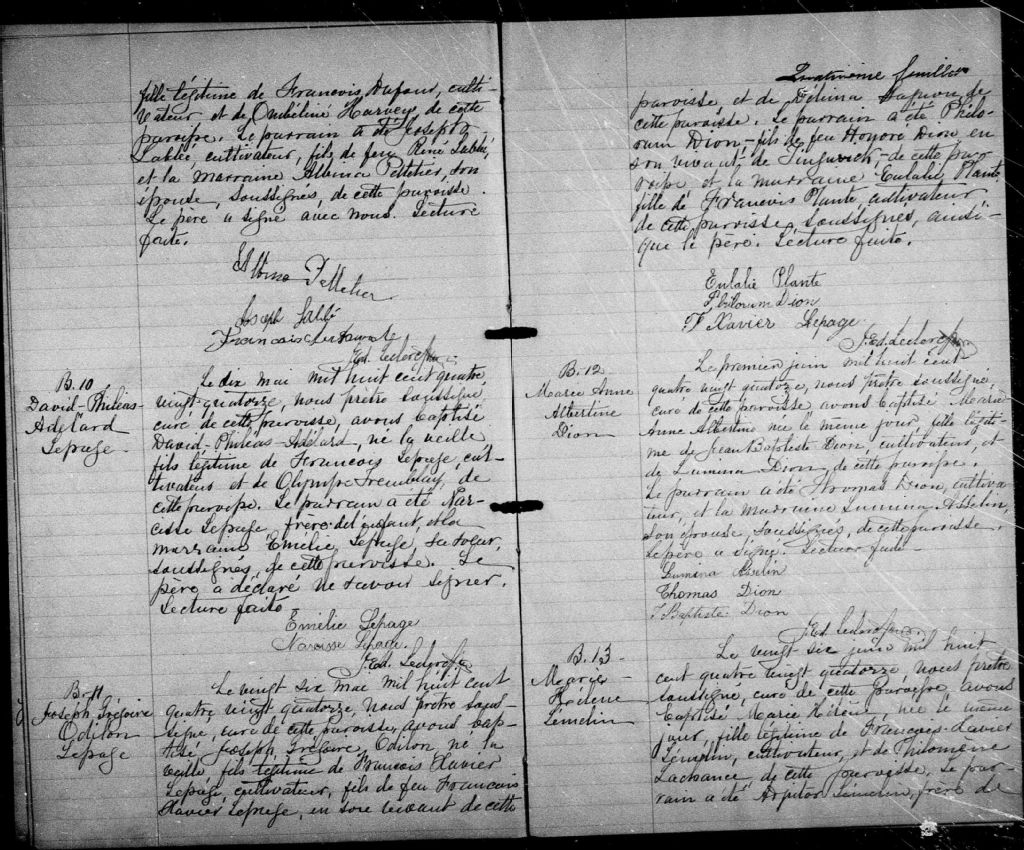 fille légitime de Francois Dufour, culti-
vateur et de Ombéline Harvey de cette
paroisse. Le parrain a été Joseph
Labbé, cultivateur, fils de feu René Labbé,
et la marraine Albina Pelletier, son
épouse, soussignés, de cette paroisse.
Le père a signé avec nous. Lecture
faite.
Albina Pelletier
Joseph Labbé
Francois
J. Ed. Leclerc
B. 10
David-Philéas-
Adélard
Lepage
Le dix mai mil huit cent quatre
vingt-quatorze, nous prêtre soussigné,
curé de cette paroisse, avons baptisé
David-Philéas-Adélard, né la veille
fils légitime de Francois Lepage, cul-
tivateur et de Olympe Tremblay, de
cette paroisse. Le parrain a été Nar-
cisse Lepage, frère de l'enfant, et la
marraine Emélie Lepage sa soeur,
soussignés, de cette paroisse. Le
père a déclaré ne savoir signer.
Lecture faite
Emélie Lepage
Narcisse Lepage
J. Ed. Leclerc
B. 11
Joseph Grégoire
Odilon
Lepage
Le vingt six mai mil huit cent
quatre vingt quatorze nous prêtre sous-
signé, curé de cette paroisse, avons bap-
tisé Joseph, Grégoire, Odilon, né la
veille fils légitime de Francois Xavier
Lepage cultivateur, fils de feu Francois
Xavier Lepage, en son vivant de cette
Quatrième feuillet
paroisse, et de Délima de
cette paroisse. Le parrain a été Philo-
rum Dion - fils de feu Honoré Dion en
son vivant de - de cette par
oisse et la marraine Eulalie Plante,
fille de Francois Plante, cultivateur
de cette paroisse, soussignés, ainsi-
que le père. Lecture faite.
Eulalie Plante
Philorum Dion
F Xavier Lepage
J. Ed. Leclerc
B. 12
Marie Anne
Albertine
Dion
Le premier juin mil huit cent
quatre vingt quatorze, nous prêtre soussigné,
curé de cette paroisse, avons baptisé Marie
Anne Albertine née le même jour, fille légiti-
me de Jean Baptiste Dion, cultivateur, et
de Lumina Dion, de cette paroisse.
Le parrain a été Thomas Dion, cultiva-
teur, et la marraine Lumina Asselin,
son épouse, soussignés, de cette paroisse.
Le père a signé. Lecture faite
Lumina Asselin
Thomas Dion
J Baptiste Dion
J. Ed. Leclerc
B. 13
Marie
Hélène
Lemelin
Le vingt six juin mil huit
cent quatre vingt quatorze nous prêtre
soussigné, curé de cette paroisse, avons
baptisé Marie Hélène née le même
jour, fille légitime de François-Xavier
Lemelin, cultivateur, et de Philomène
Lachance de cette paroisse. Le par-
rain a été Lemelin, frère de